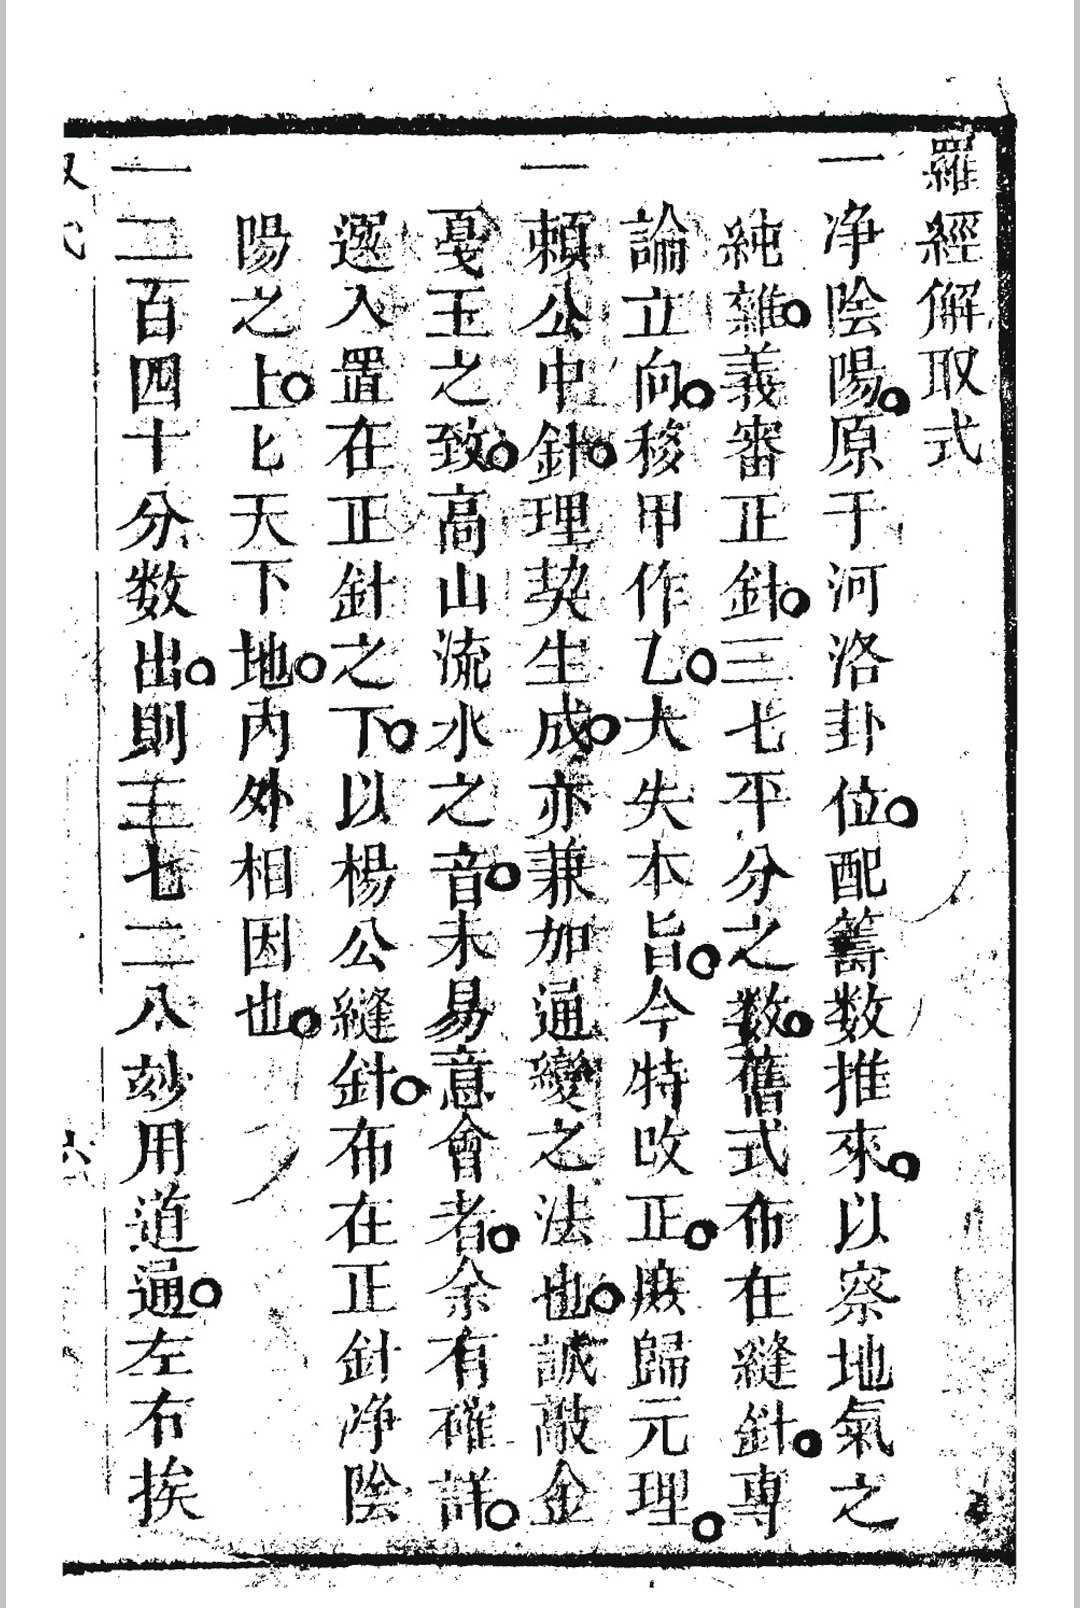 羅經解取式
一净陰陽。原于河洛卦位。配籌数推來。以察地氣之
純雜。義審正針。三七平分之数。舊式布在縫針。專
論立向。移甲作乙。大失本旨。今特改正。厥歸元理。
一賴公中針。理契生成。亦兼加通變之法也。誠敲金
戛玉之致。高山流水之音。未易意會者。余有確詳。
選入置在正針之下。以楊公縫針。布在正針净陰
陽之上。上天下地。内外相因也。
一二百四十分数出。則三七二八玅用道通。左右挨
六